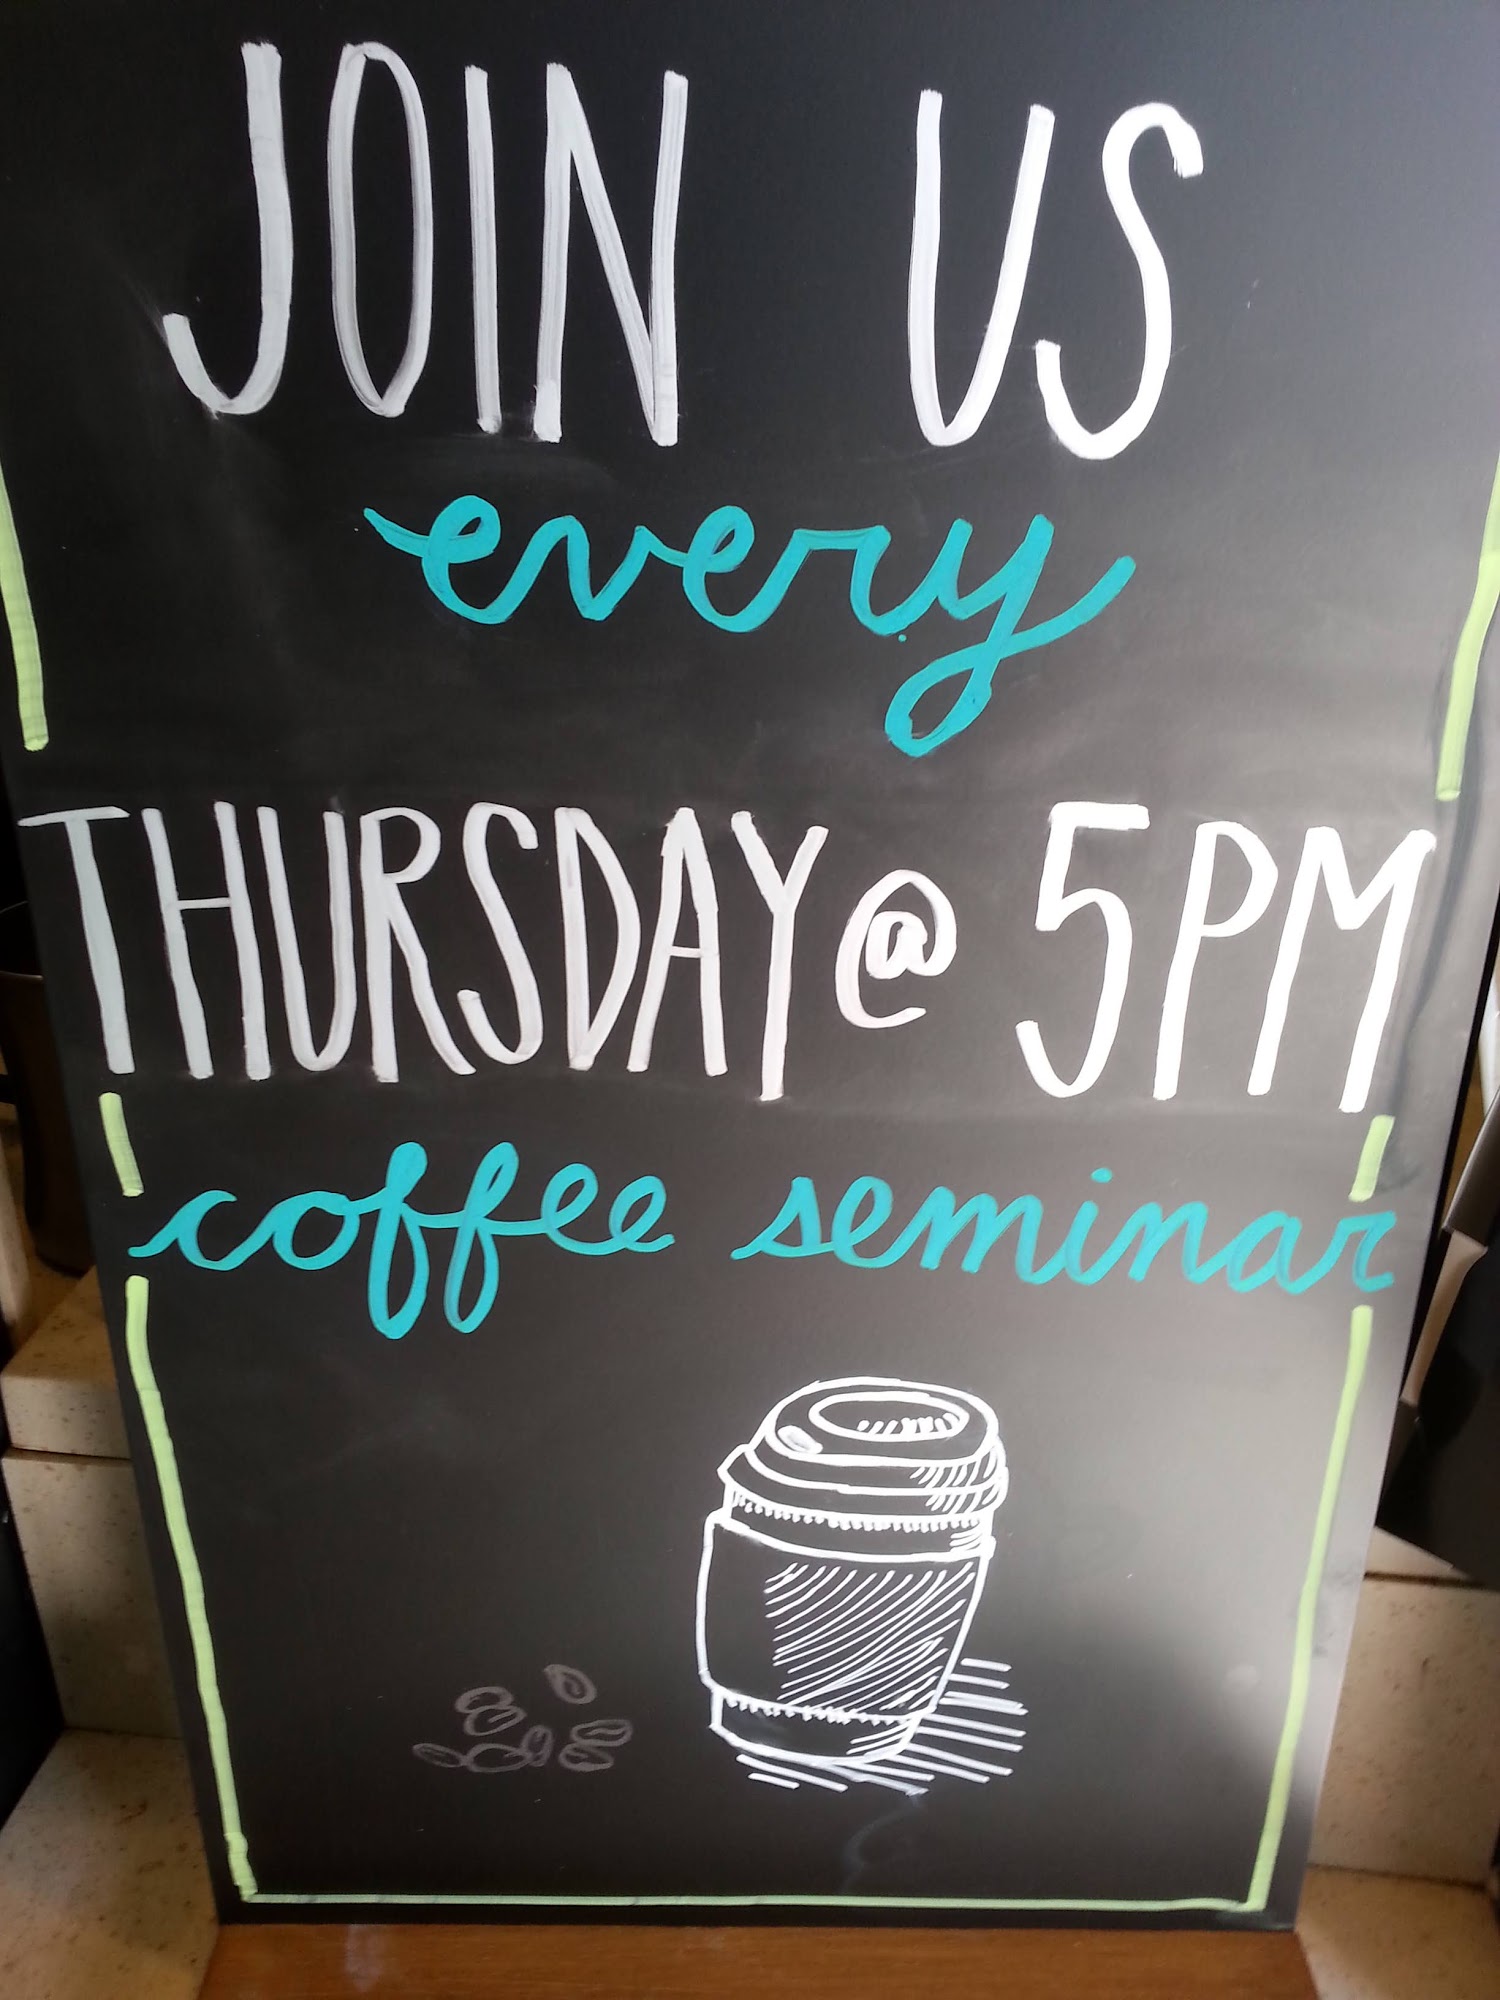 JOIN US
every
THURSDAY @ 5PM
coffee seminar